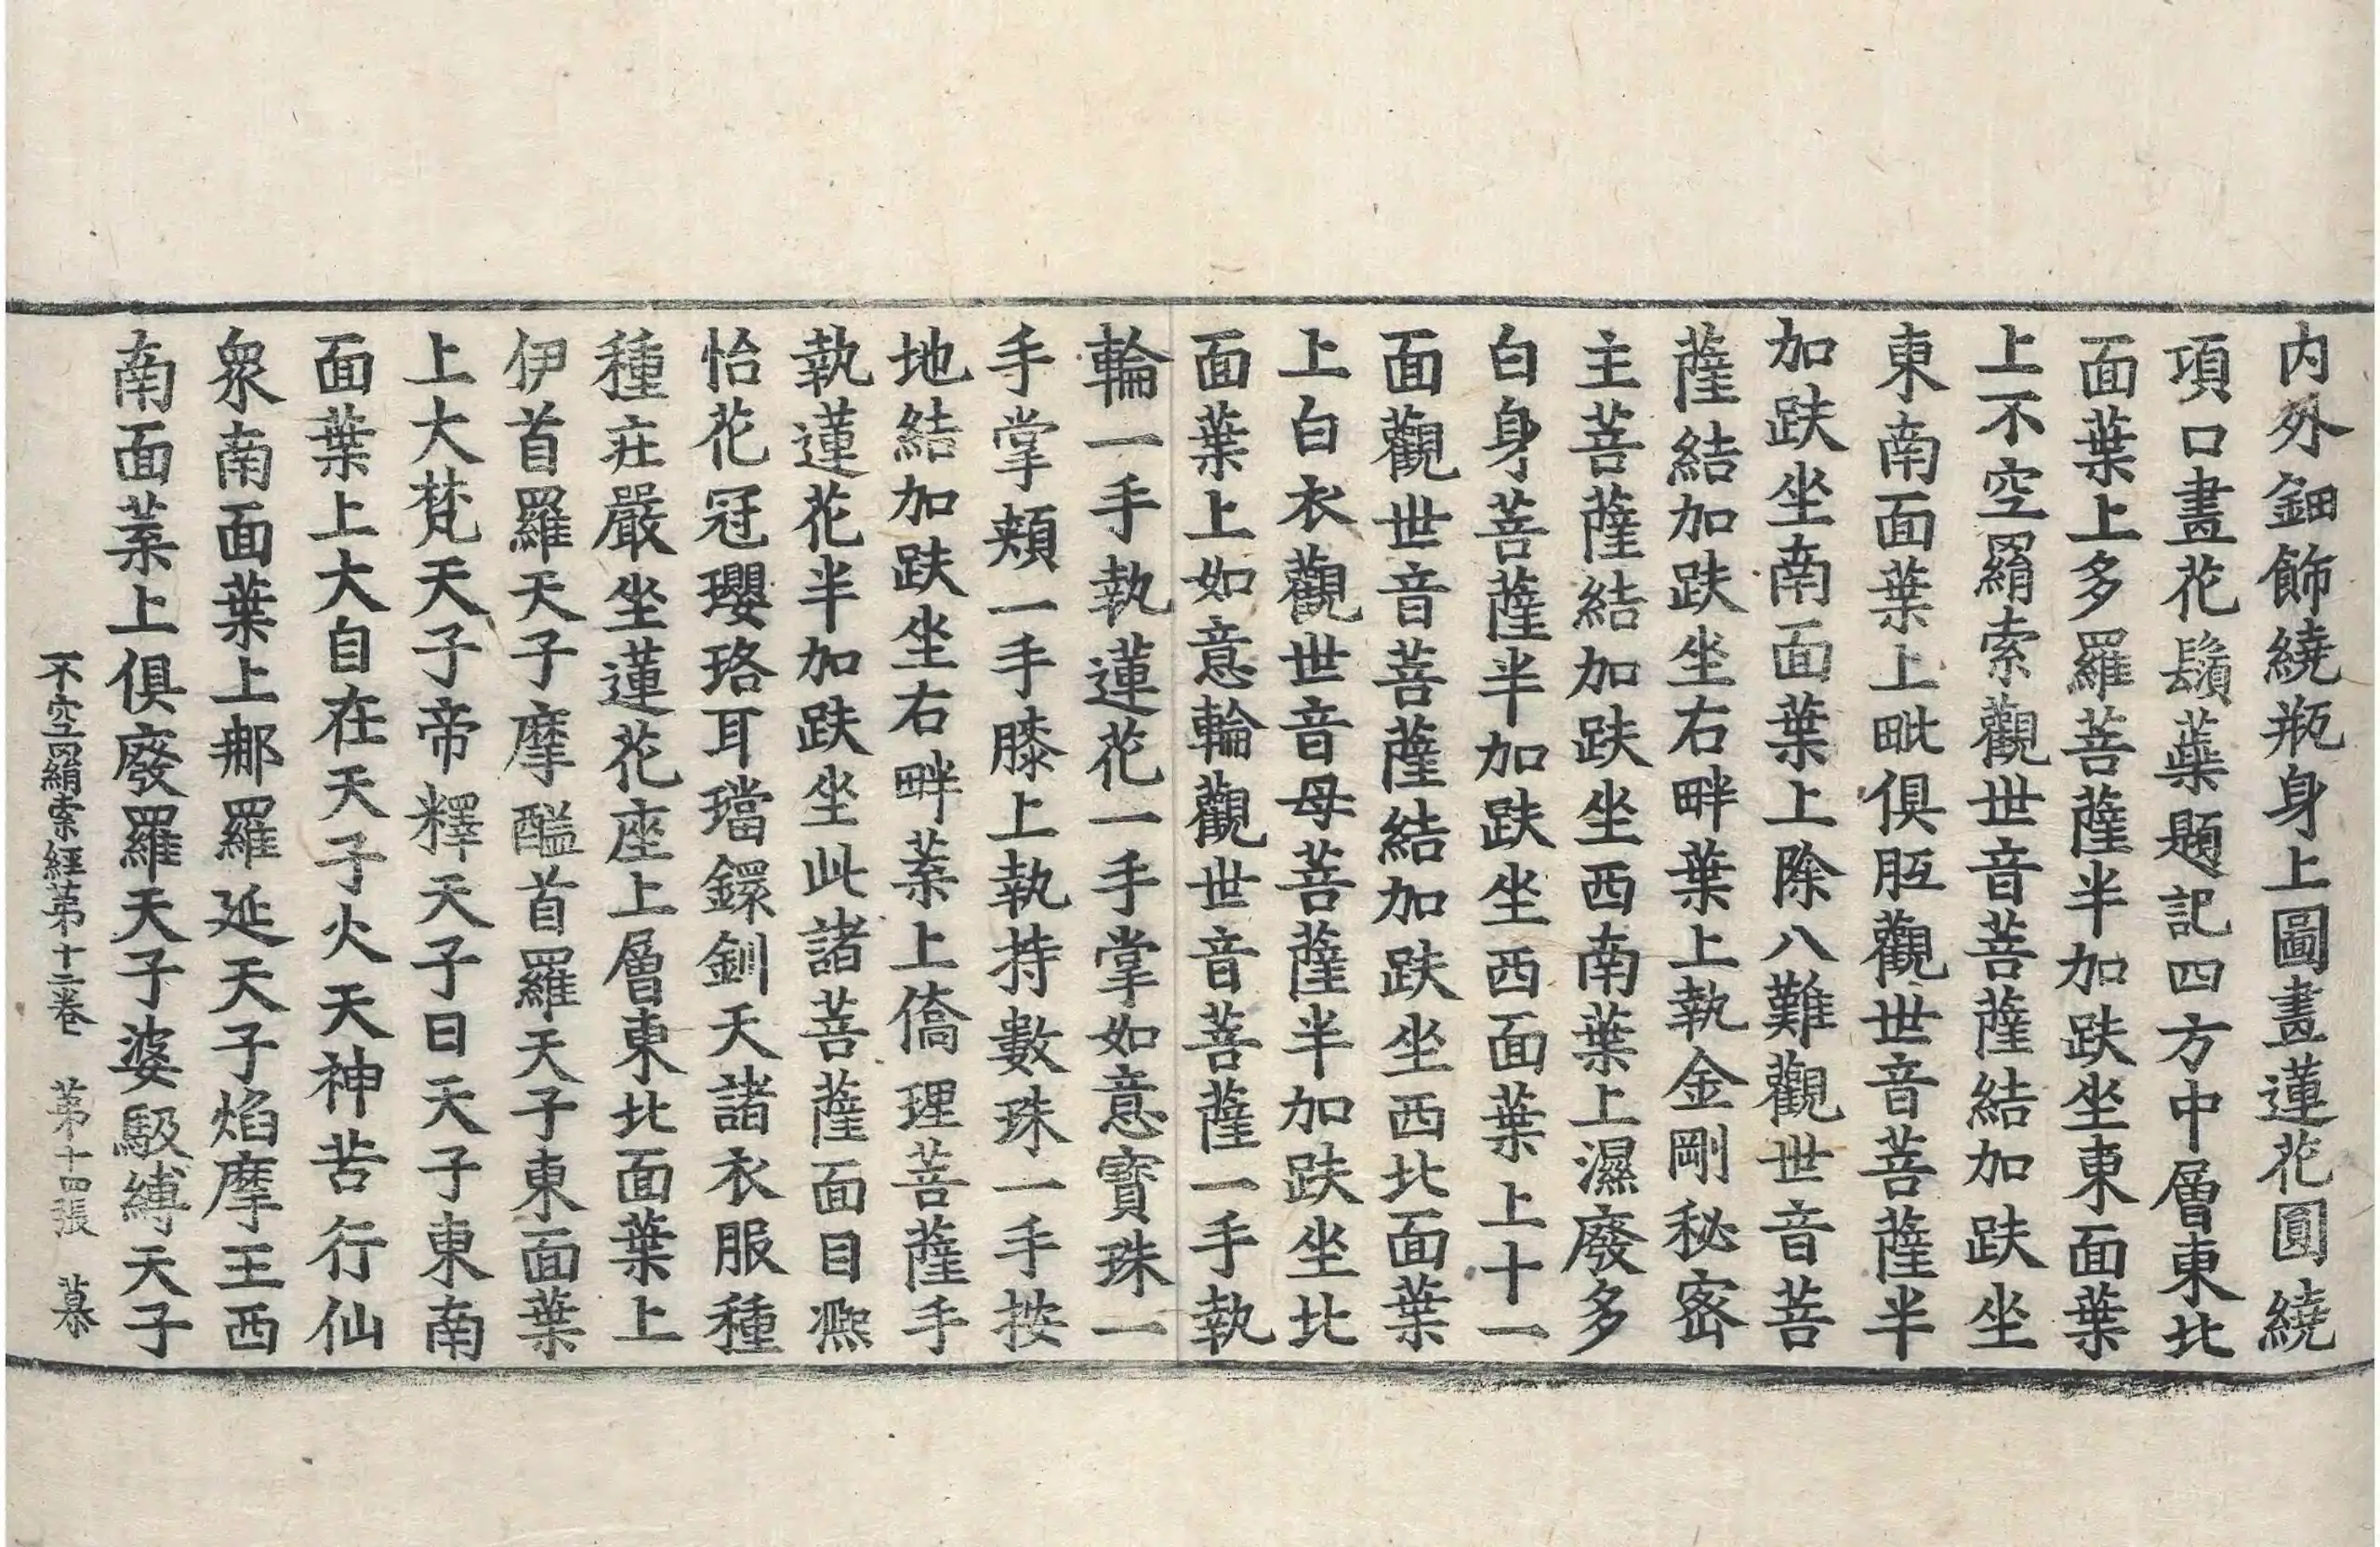 内外鈿飾繞瓶身上圖畫蓮花圓繞
項口畫花鬚蘂題記四方中層東北
面葉上多羅菩薩半加趺坐東面葉
上不空羂索觀世音菩薩結加趺坐
東南面葉上毗俱胝觀世音菩薩半
加趺坐南面葉上除八難觀世音菩
薩結加趺坐右畔葉上執金剛秘密
主菩薩結加趺坐西南葉上濕廢多
白身菩薩半加趺坐西面葉上十一
面觀世音菩薩結加趺坐西北面葉
上白衣觀世音母菩薩半加趺坐北
面葉上如意輪觀世音菩薩一手執
輪一手執蓮花一手掌如意寶珠一
手掌頰一手膝上執持數珠一手按
地結加趺坐右畔葉上僑理菩薩手
執蓮花半加趺坐此諸菩薩面目熈
怡花冠瓔珞耳璫鐶釧天諸衣服種
種莊嚴坐蓮花座上層東北面葉上
伊首羅天子摩醯首羅天子東面葉
上大梵天子帝釋天子日天子東南
面葉上大自在天子火天神苦行仙
衆南面葉上那羅延天子焰摩王西
南面葉上俱廢羅天子婆馺縛天子
不空羂索經第十二卷 第十四張 慕